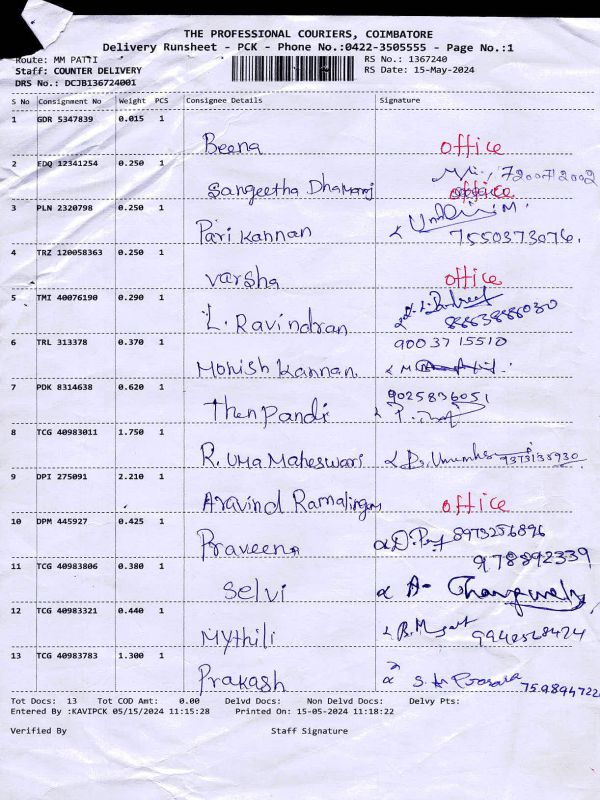 THE PROFESSIONAL COURIERS, COIMBATORE
Delivery Runsheet - PCK - Phone No.:0422-3505555 - Page No.:1
Route: MM PATTI
RS No.: 1367240
Staff: COUNTER DELIVERY
RS Date: 15-May-2024
DRS No.: DCJB136724001
S No Consignment No Weight PCS Consignee Details Signature
1 GDR 5347839 0.015 1
Beena office
2 EDQ 12341254 0.250 1
7200712002
Sangeetha Dhamaraj office
3 PLN 2320798 0.250 1
Pari Kannan 7550373076.
4 TRZ 120058363 0.250 1
Varsha office
5 TMI 40076190 0.290 1
L. Ravindran 8883888030
6 TRL 313378 0.370 1 9003715510
Mohish Kannan.
7 PDK 8314638 0.620 1 9025836051
Then Pandi
8 TCG 40983011 1.750 1
R. Uma Maheswari 9373135930
9 DPI 275091 2.210 1
Aravind Ramalingam office
10 DPM 445927 0.425 1 8973256896
Praveena
11 TCG 40983806 0.380 1 978892339
Selvi A-
12 TCG 40983321 0.440 1
Mythili 9942568424
13 TCG 40983783 1.300 1
Prakash 759894722
Tot Docs: 13 Tot COD Amt: 0.00 Delvd Docs: Non Delvd Docs: Delvy Pts:
Entered By :KAVIPCK 05/15/2024 11:15:28 Printed On: 15-05-2024 11:18:22
Verified By Staff Signature